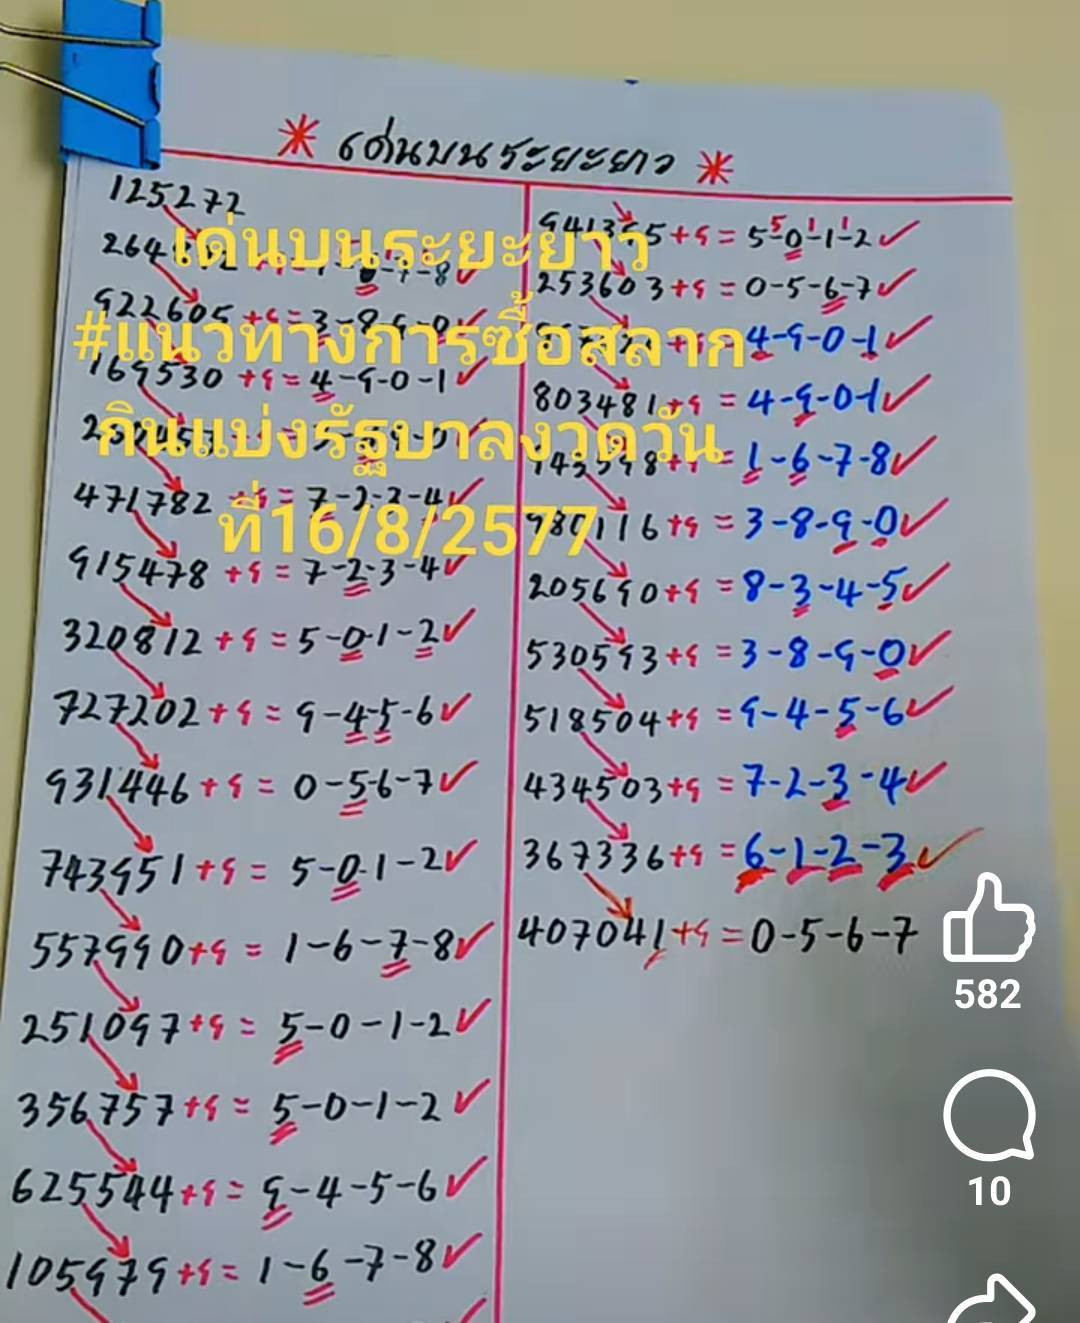 * เด่นบนระยะยาว *
125272
เด่นบนระยะยาว
#แนวทางการซื้อสลาก
กินแบ่งรัฐบาลงวดวัน
ที่16/8/2577
922605 +9 = 3-8-9-0✓
169530 +9 = 4-9-0-1✓
471782 +9 = 7-2-3-4✓
915478 +9 = 7-2-3-4✓
320812 +9 = 5-0-1-2✓
727202 +9 = 9-4-5-6✓
931446 +9 = 0-5-6-7✓
743951 +9 = 5-0-1-2✓
557990 +9 = 1-6-7-8✓
251097 +9 = 5-0-1-2✓
356757 +9 = 5-0-1-2✓
625544 +9 = 9-4-5-6✓
105979 +9 = 1-6-7-8✓
+9 = 5-0-1-2✓
253603 +9 = 0-5-6-7✓
4-9-0-1✓
803481 +9 = 4-9-0-1✓
= 1-6-7-8✓
980116 +9 = 3-8-9-0✓
205690 +9 = 8-3-4-5✓
530593 +9 = 3-8-9-0✓
518504 +9 = 9-4-5-6✓
434503 +9 = 7-2-3-4✓
367336 +9 = 6-1-2-3✓
407041 +9 = 0-5-6-7
582
10